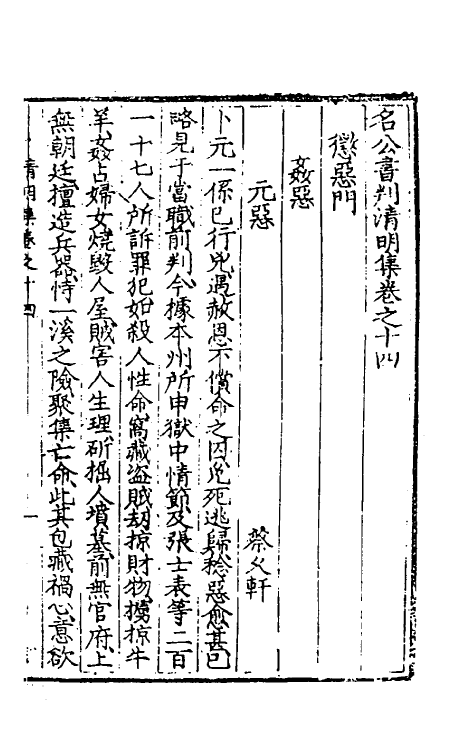 名公書判清明集卷之十四
懲惡門
姦惡
元惡 蔡久軒
卜元一係已行兇遇赦恩不償命之囚兇死逃歸稔惡愈甚已
略見于當職前判今據本州所申獄中情節及張士表等二百
一十七人所訴罪犯如殺人性命窩藏盜賊劫掠財物擄掠牛
羊姦占婦女燒毀人屋賊害人生理斫掘人墳墓前無官府上
無朝廷擅造兵器恃一溪之險聚集亡命此其包藏禍心意欲
清明集卷之十四 一